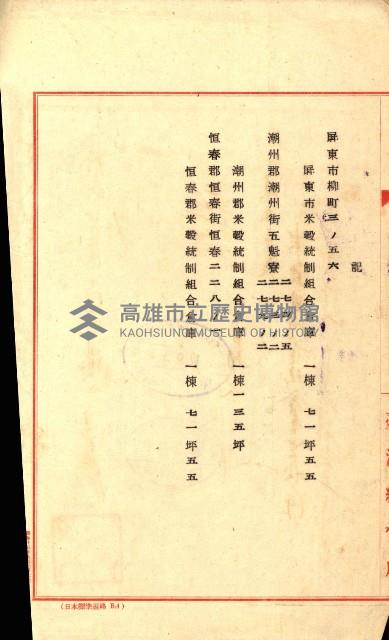 記
屏東市柳町三ノ五六
屏東市米穀統制組合倉庫 一棟 七一坪五五
潮州郡潮州街五魁寮
潮州郡米穀統制組合倉庫 一棟一三五坪
恒春郡恒春街恒春二二八ノ二
恒春郡米穀統制組合倉庫 一棟 七一坪五五
高雄市立歷史博物館
KAOHSIUNG MUSEUM OF HISTORY
(日本標準規格 B4)